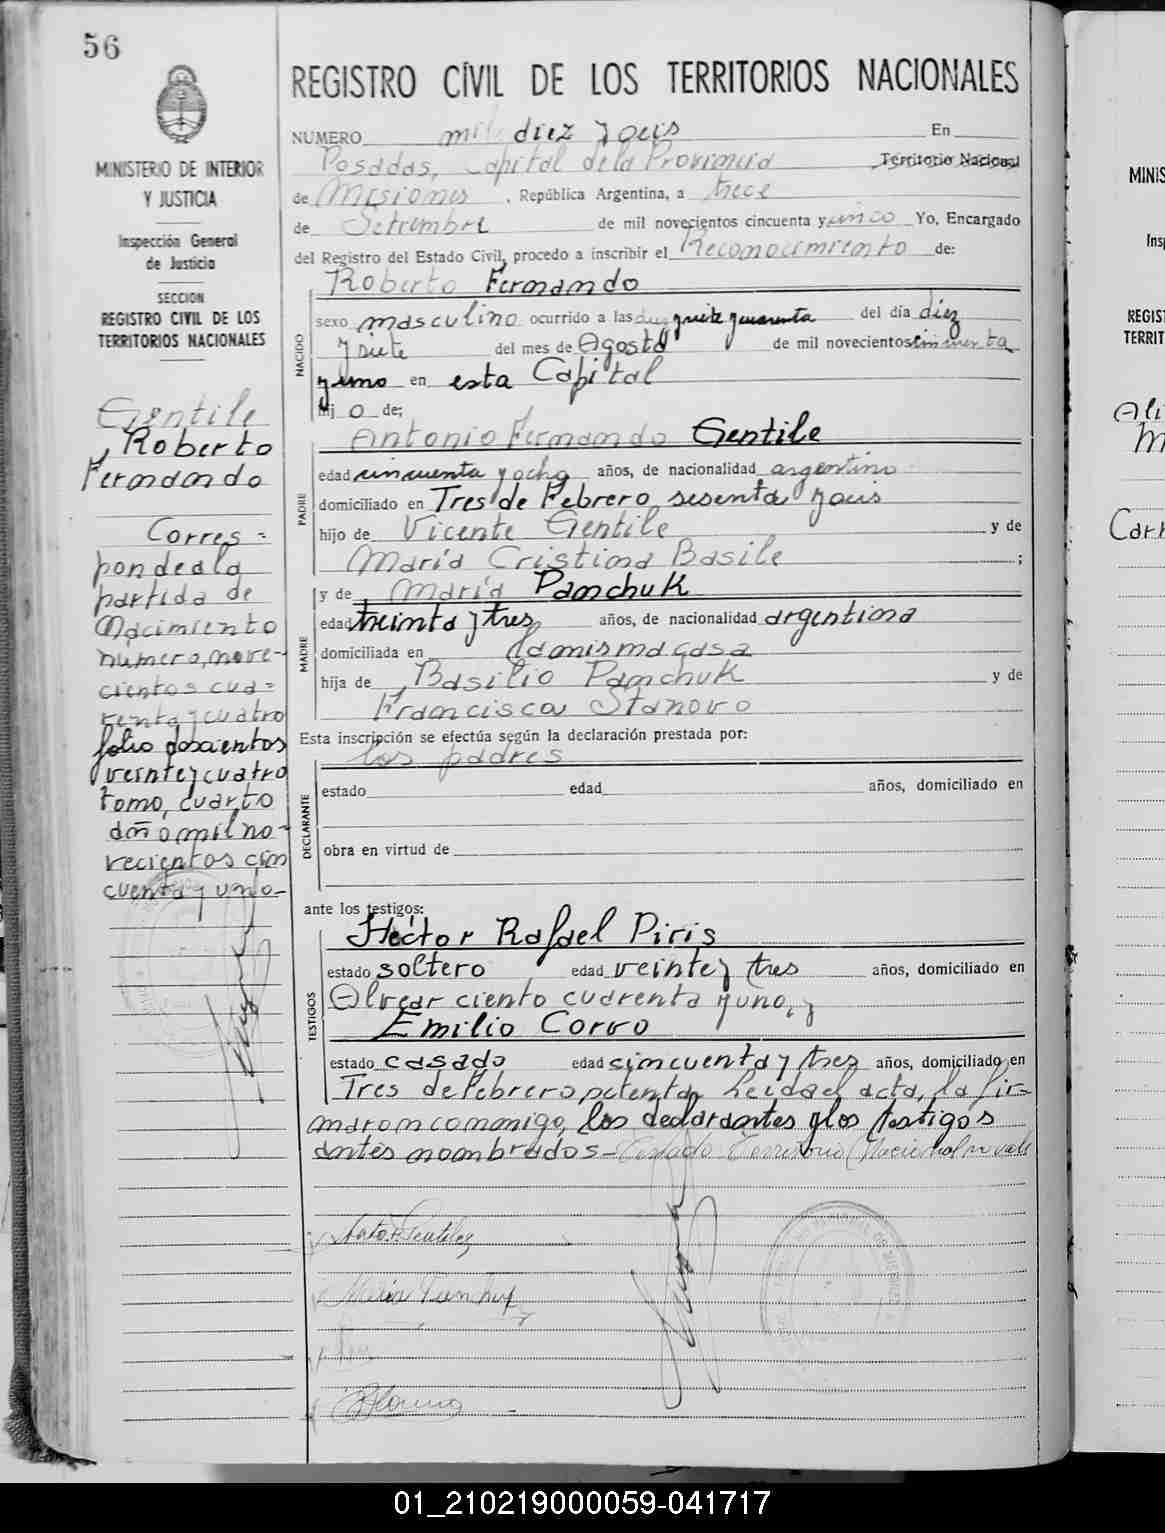 56
MINISTERIO DE INTERIOR
Y JUSTICIA
Inspección General
de Justicia
SECCION
REGISTRO CIVIL DE LOS
TERRITORIOS NACIONALES
Gentile
, Roberto
Fernando
Corres=
ponde a la
partida de
Nacimiento
número, nove-
cientos cua=
renta y cuatro
folio doscientos
veinte y cuatro
tomo, cuarto
año mil no-
vecientos cin
cuenta y uno-
REGISTRO CIVIL DE LOS TERRITORIOS NACIONALES
NUMERO mil diez y seis En
Posadas, Capital de la Provincia Territorio Nacional
de Misiones, República Argentina, a trece
de Setiembre de mil novecientos cincuenta y cinco Yo, Encargado
del Registro del Estado Civil, procedo a inscribir el Reconocimiento de:
Roberto Fernando
NACIDO
sexo masculino ocurrido a las diez y siete y cuarenta del día diez
y siete del mes de Agosto de mil novecientos cincuenta
y uno en esta Capital
hij o de;
Antonio Fernando Gentile
PADRE
edad cincuenta y ocho años, de nacionalidad argentino
domiciliado en Tres de Febrero sesenta y seis
hijo de Vicente Gentile y de
María Cristina Basile ;
y de María Panchuk
MADRE
edad treinta y tres años, de nacionalidad argentina
domiciliada en la misma casa
hija de Basilio Panchuk y de
Francisca Stanovo
Esta inscripción se efectúa según la declaración prestada por:
los padres
DECLARANTE
estado edad años, domiciliado en
obra en virtud de
ante los testigos:
Héctor Rafael Piris
TESTIGOS
estado soltero edad veinte y tres años, domiciliado en
Alvear ciento cuarenta y uno, y
Emilio Corvo
estado casado edad cincuenta y tres años, domiciliado en
Tres de Febrero setenta. Leida el acta, la fir=
maron conmigo, los declarantes y los testigos
antes nombrados- Testado Territorio Nacional no vale
Anto. F. Gentile
María Panchuk
01_210219000059-041717